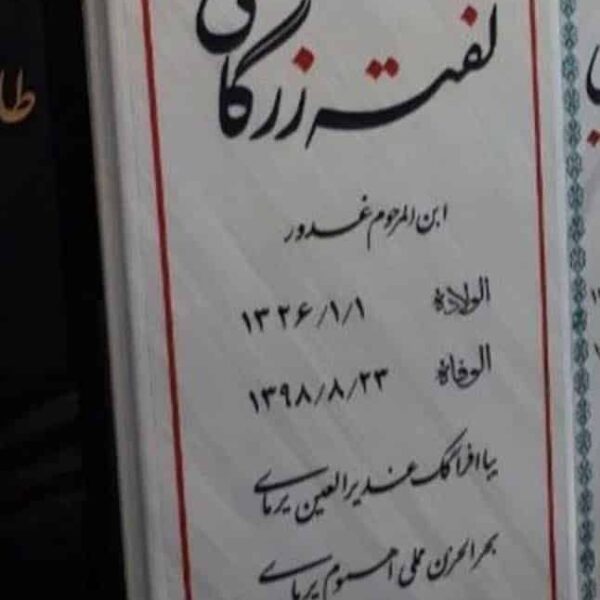 لفته زرگانی
ابن المرحوم غدور
الولادة ۱۳۲۶/۱/۱
الوفاة ۱۳۹۸/۸/۲۳
یا افراگک غدیر العین یرمای
بحر الحزن مملی اهموم یرمای
طا